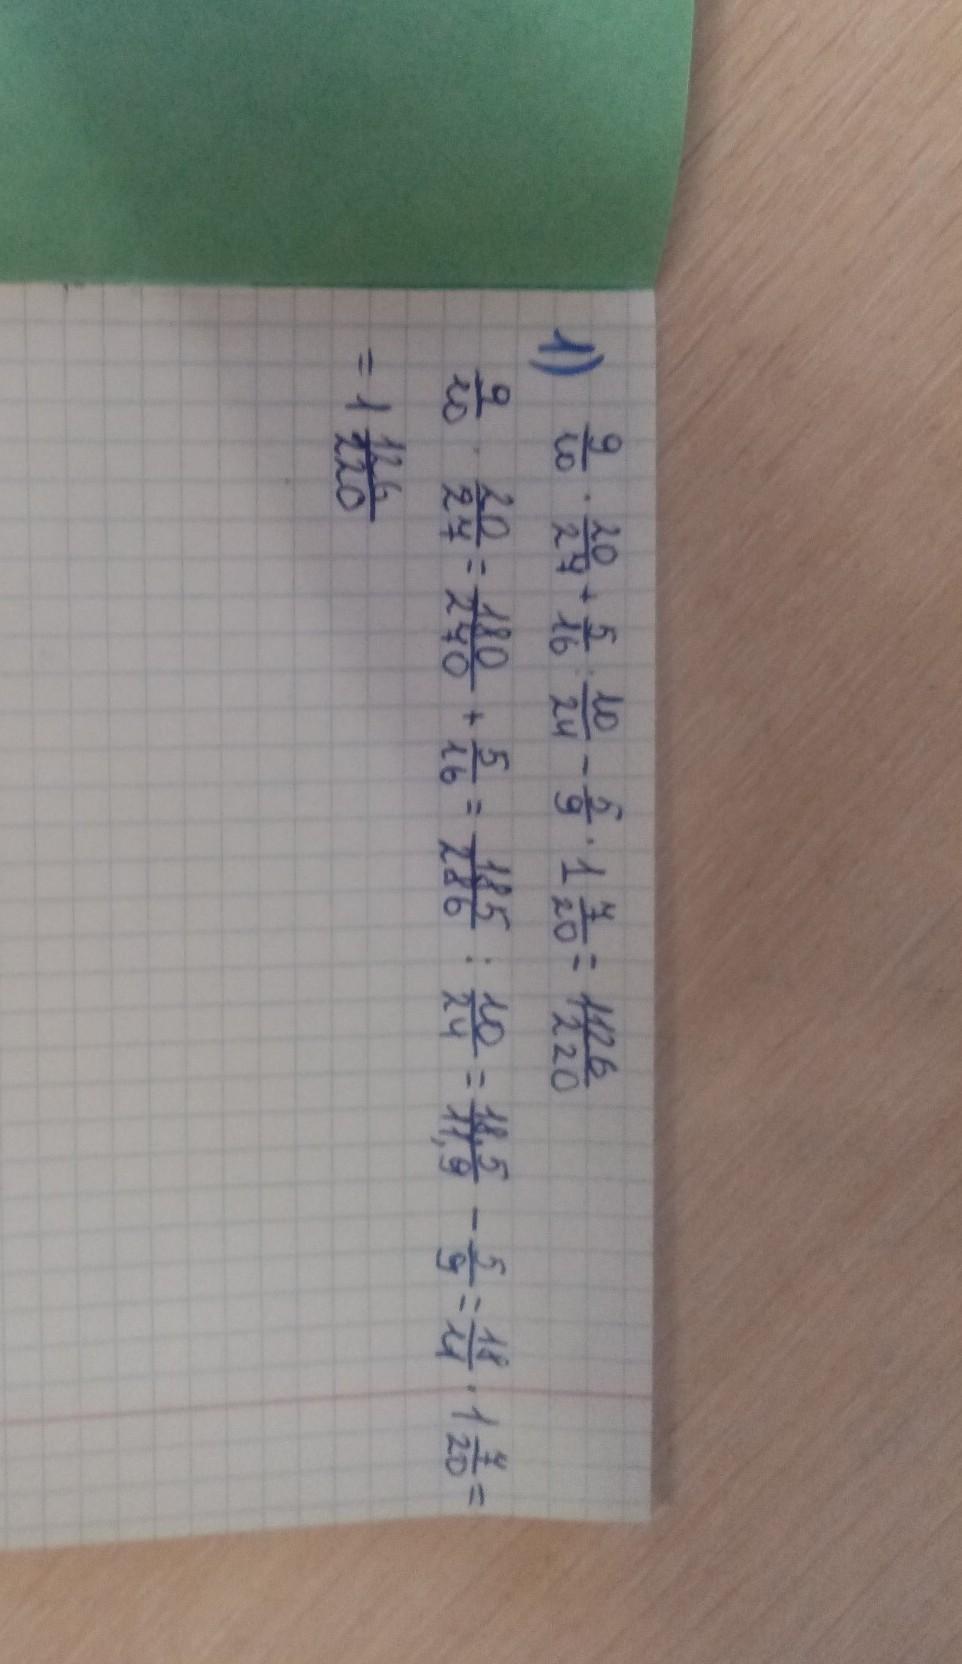 1) 9/10 · 20/27 + 5/16 : 10/24 - 5/9 · 1 7/20 = 1 126/220
9/10 · 20/27 = 180/270 + 5/16 = 185/286 : 10/24 = 18,5/11,9 - 5/9 = 18/11 · 1 7/20 =
= 1 126/220